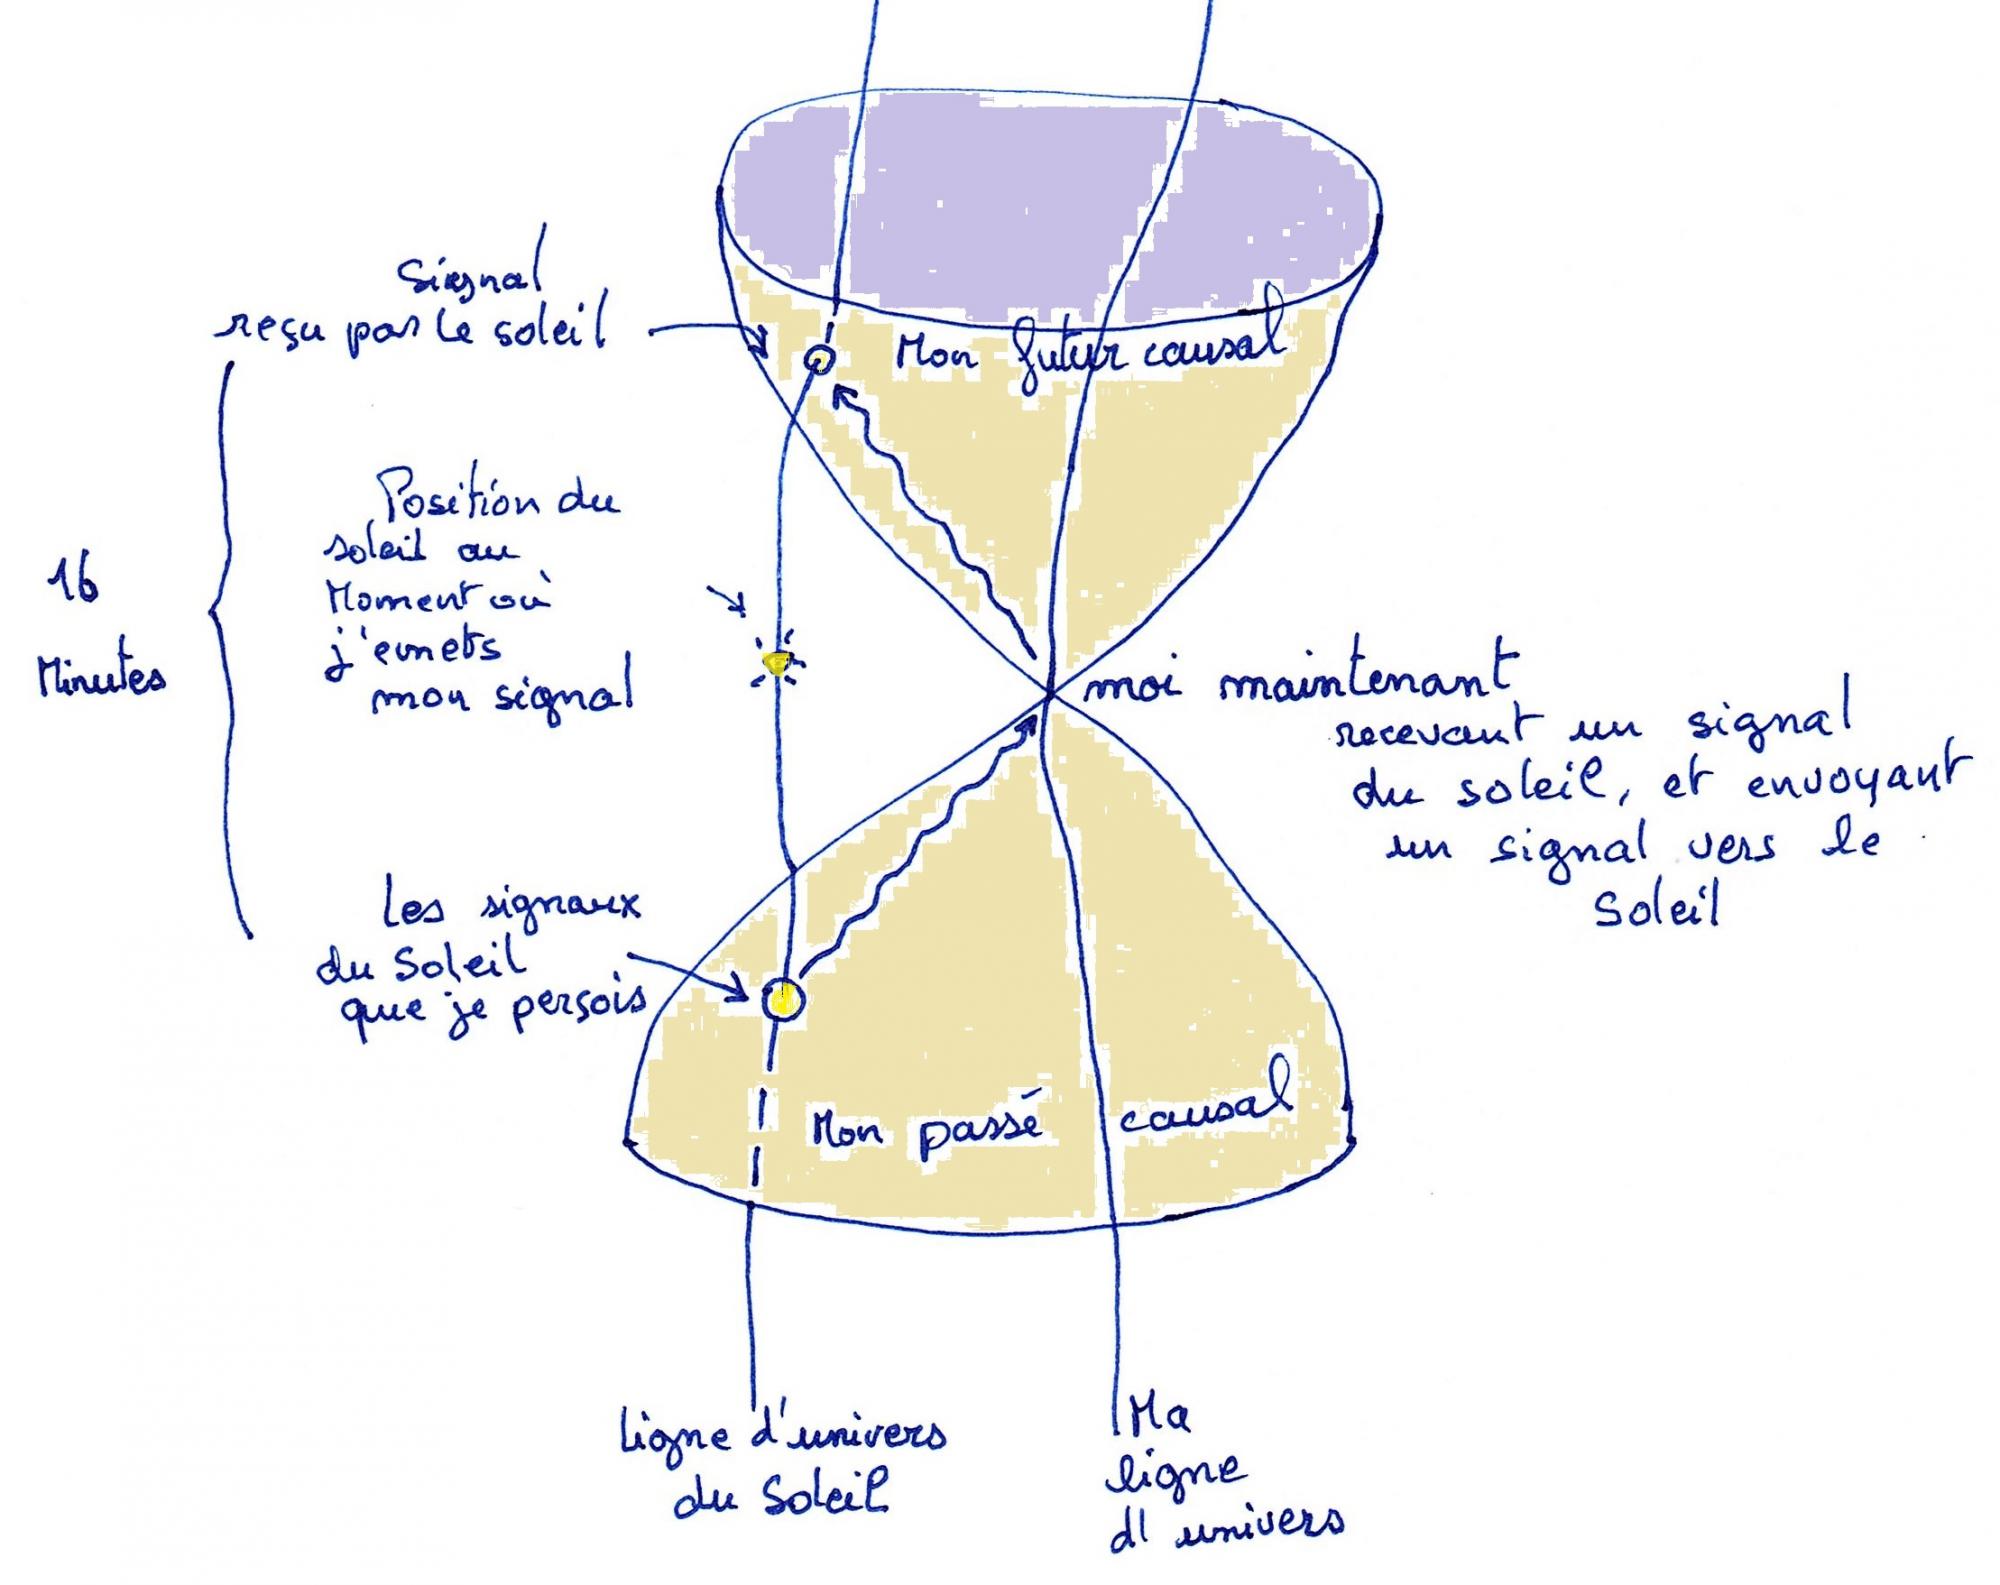 Signal
reçu par le soleil
Mon futur causal
16
Minutes
Position du
soleil au
Moment où
j'emets
mon signal
moi maintenant
recevant un signal
du soleil, et envoyant
un signal vers le
Soleil
Les signaux
du Soleil
que je persois
Mon passé causal
ligne d'univers
du Soleil
Ma
ligne
d'univers